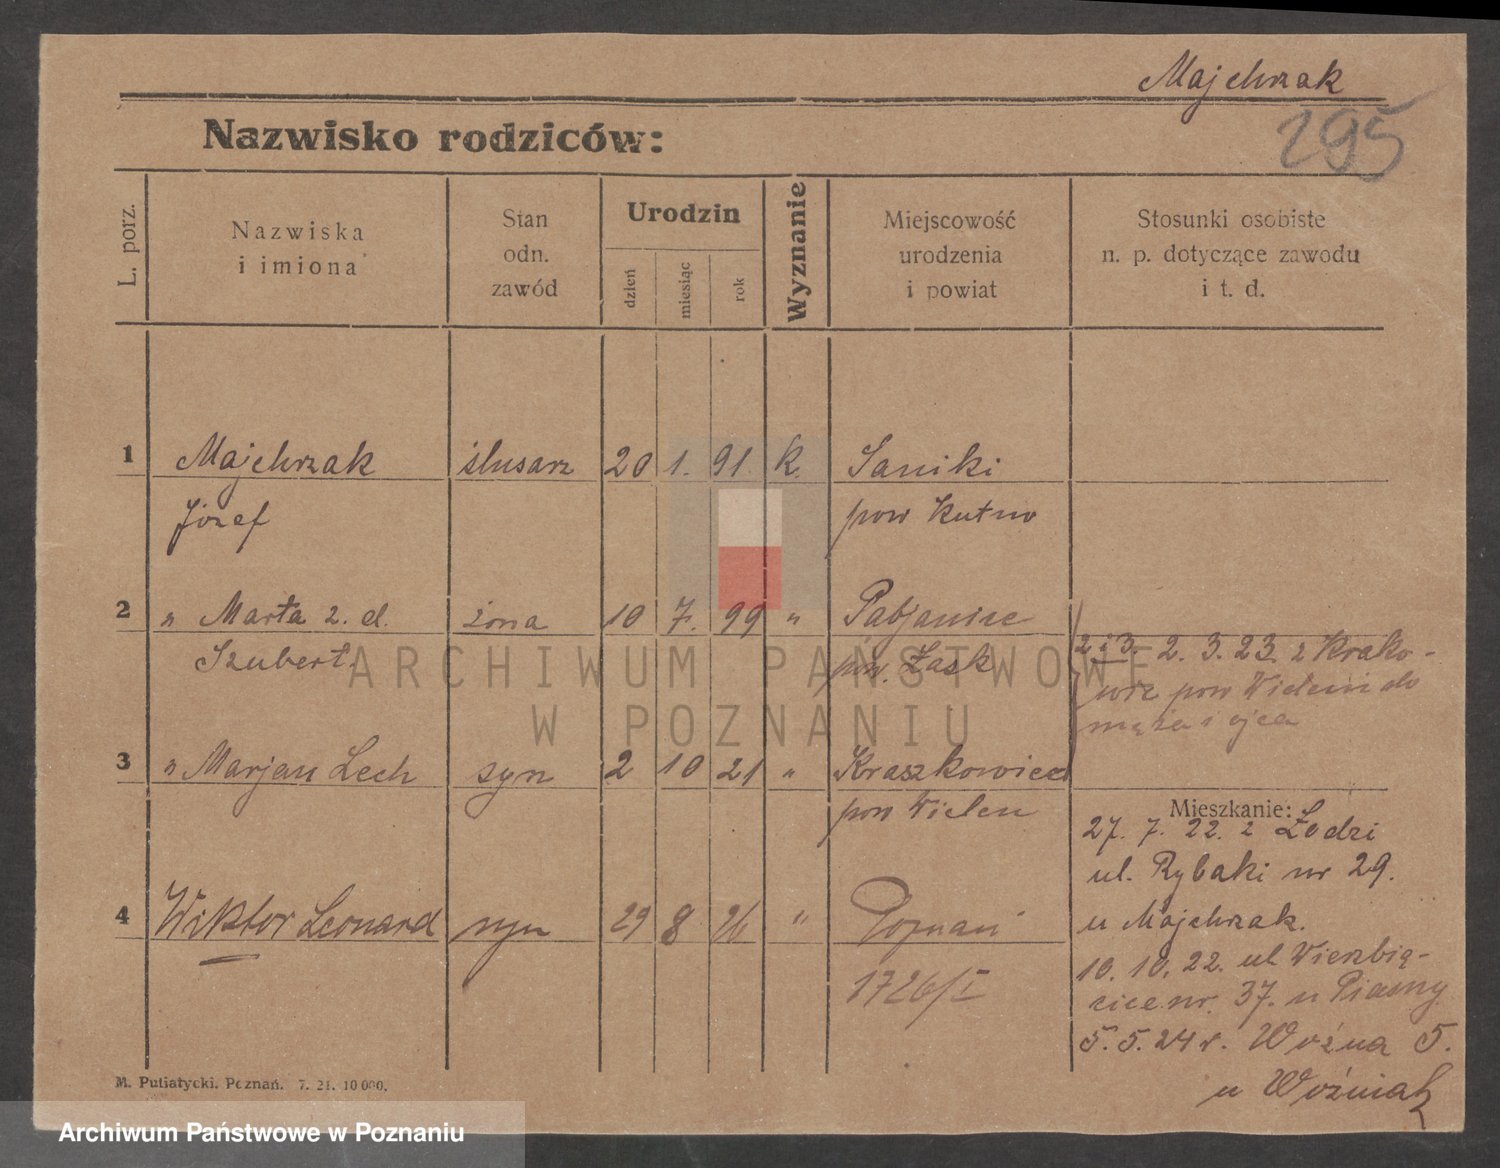 Majchrzak
295
Nazwisko rodziców:
L. porz.
Nazwiska
i imiona
Stan
odn.
zawód
Urodzin
dzień
miesiąc
rok
Wyznanie
Miejscowość
urodzenia
i powiat
Stosunki osobiste
n. p. dotyczące zawodu
i t. d.
1 Majchrzak ślusarz 20 1. 91 k. Saniki
Józef pow Kutno
2 " Marta z. d. żona 10 7. 99 " Pabjanice
Szubert pow. Łask
2 i 3. 2. 3. 23. z Krako-
wic pow Wieluń do
męża i ojca
3 " Marjan Lech syn 2 10 21 " Kraszkowice
pow Wieluń
Mieszkanie:
27. 7. 22. z Łodzi
ul. Rybaki nr 29.
u Majchrzak.
4 Wiktor Leonard syn 29 8 26 " Poznań
1726/I
10. 10. 22. ul Wierzbię-
cice nr. 37. u
5. 5. 24 r. Woźna 5.
u Woźniak
M. Putiatycki. Poznań. 7. 21. 10 000.
ARCHIWUM PAŃSTWOWE
W POZNANIU
Archiwum Państwowe w Poznaniu